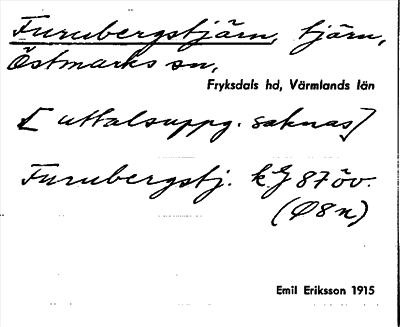 Furubergstjärn, tjärn,
Östmarks sn,
Fryksdals hd, Värmlands län
[uttalsuppg. saknas]
Furubergstj. kG 87 öv.
(Ö8n)
Emil Eriksson 1915